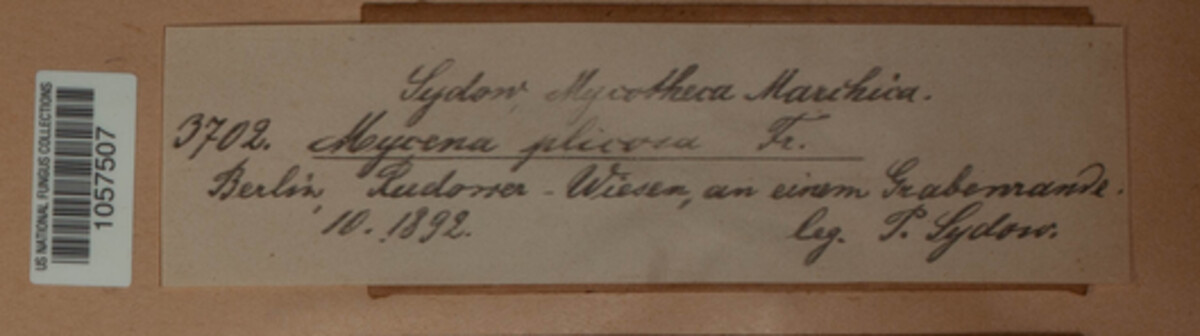 US NATIONAL FUNGUS COLLECTIONS
1057507
Sydow, Mycotheca Marchica.
3702. Mycena plicosa Fr.
Berlin, Rudower - Wiesen, an einem Grabenrande.
10. 1892. leg. P. Sydow.